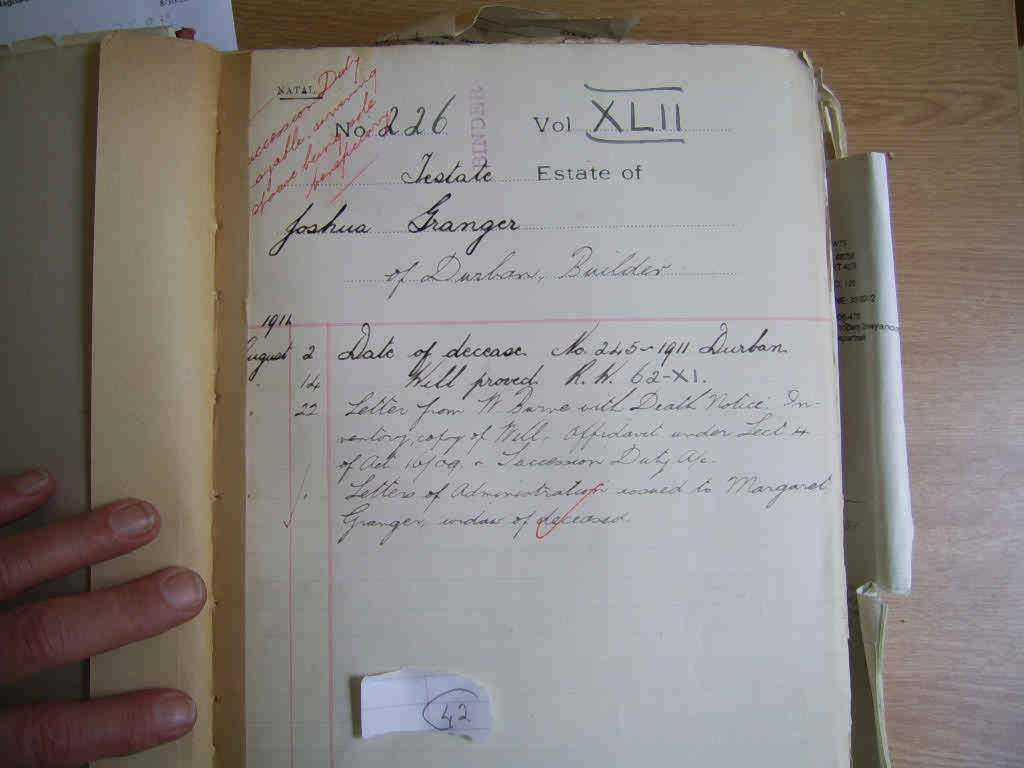 NATAL
Succession Duty
payable surviving
spouse being sole
beneficiary
No. 226
BINDER
Vol XLII
Testate Estate of
Joshua Granger
of Durban, Builder
1911
August 2 Date of decease. No. 245-1911 Durban.
" 14 Will proved. R.W. 62-XI.
" 22 Letter from W Burne with Death Notice. In-
ventory, copy of Will, Affidavit under Sect 4
of Act 10/09, & Succession Duty A/c.
Letters of Administration issued to Margaret
Granger, widow of deceased.
42